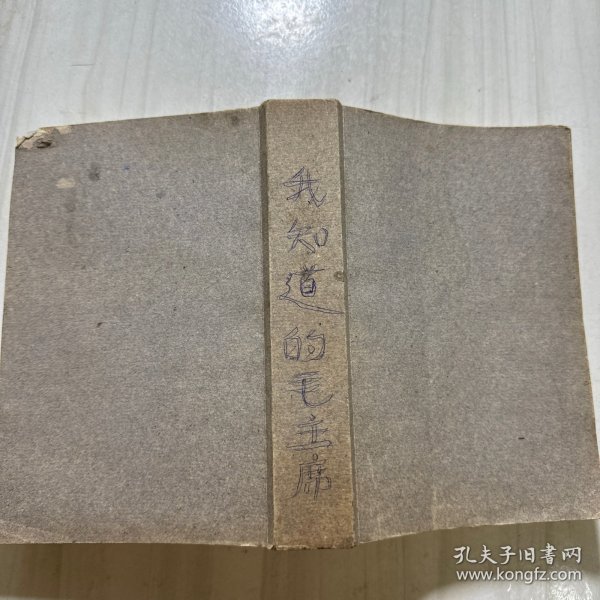 我知道的毛主席
孔夫子旧書网
www.kongfz.com